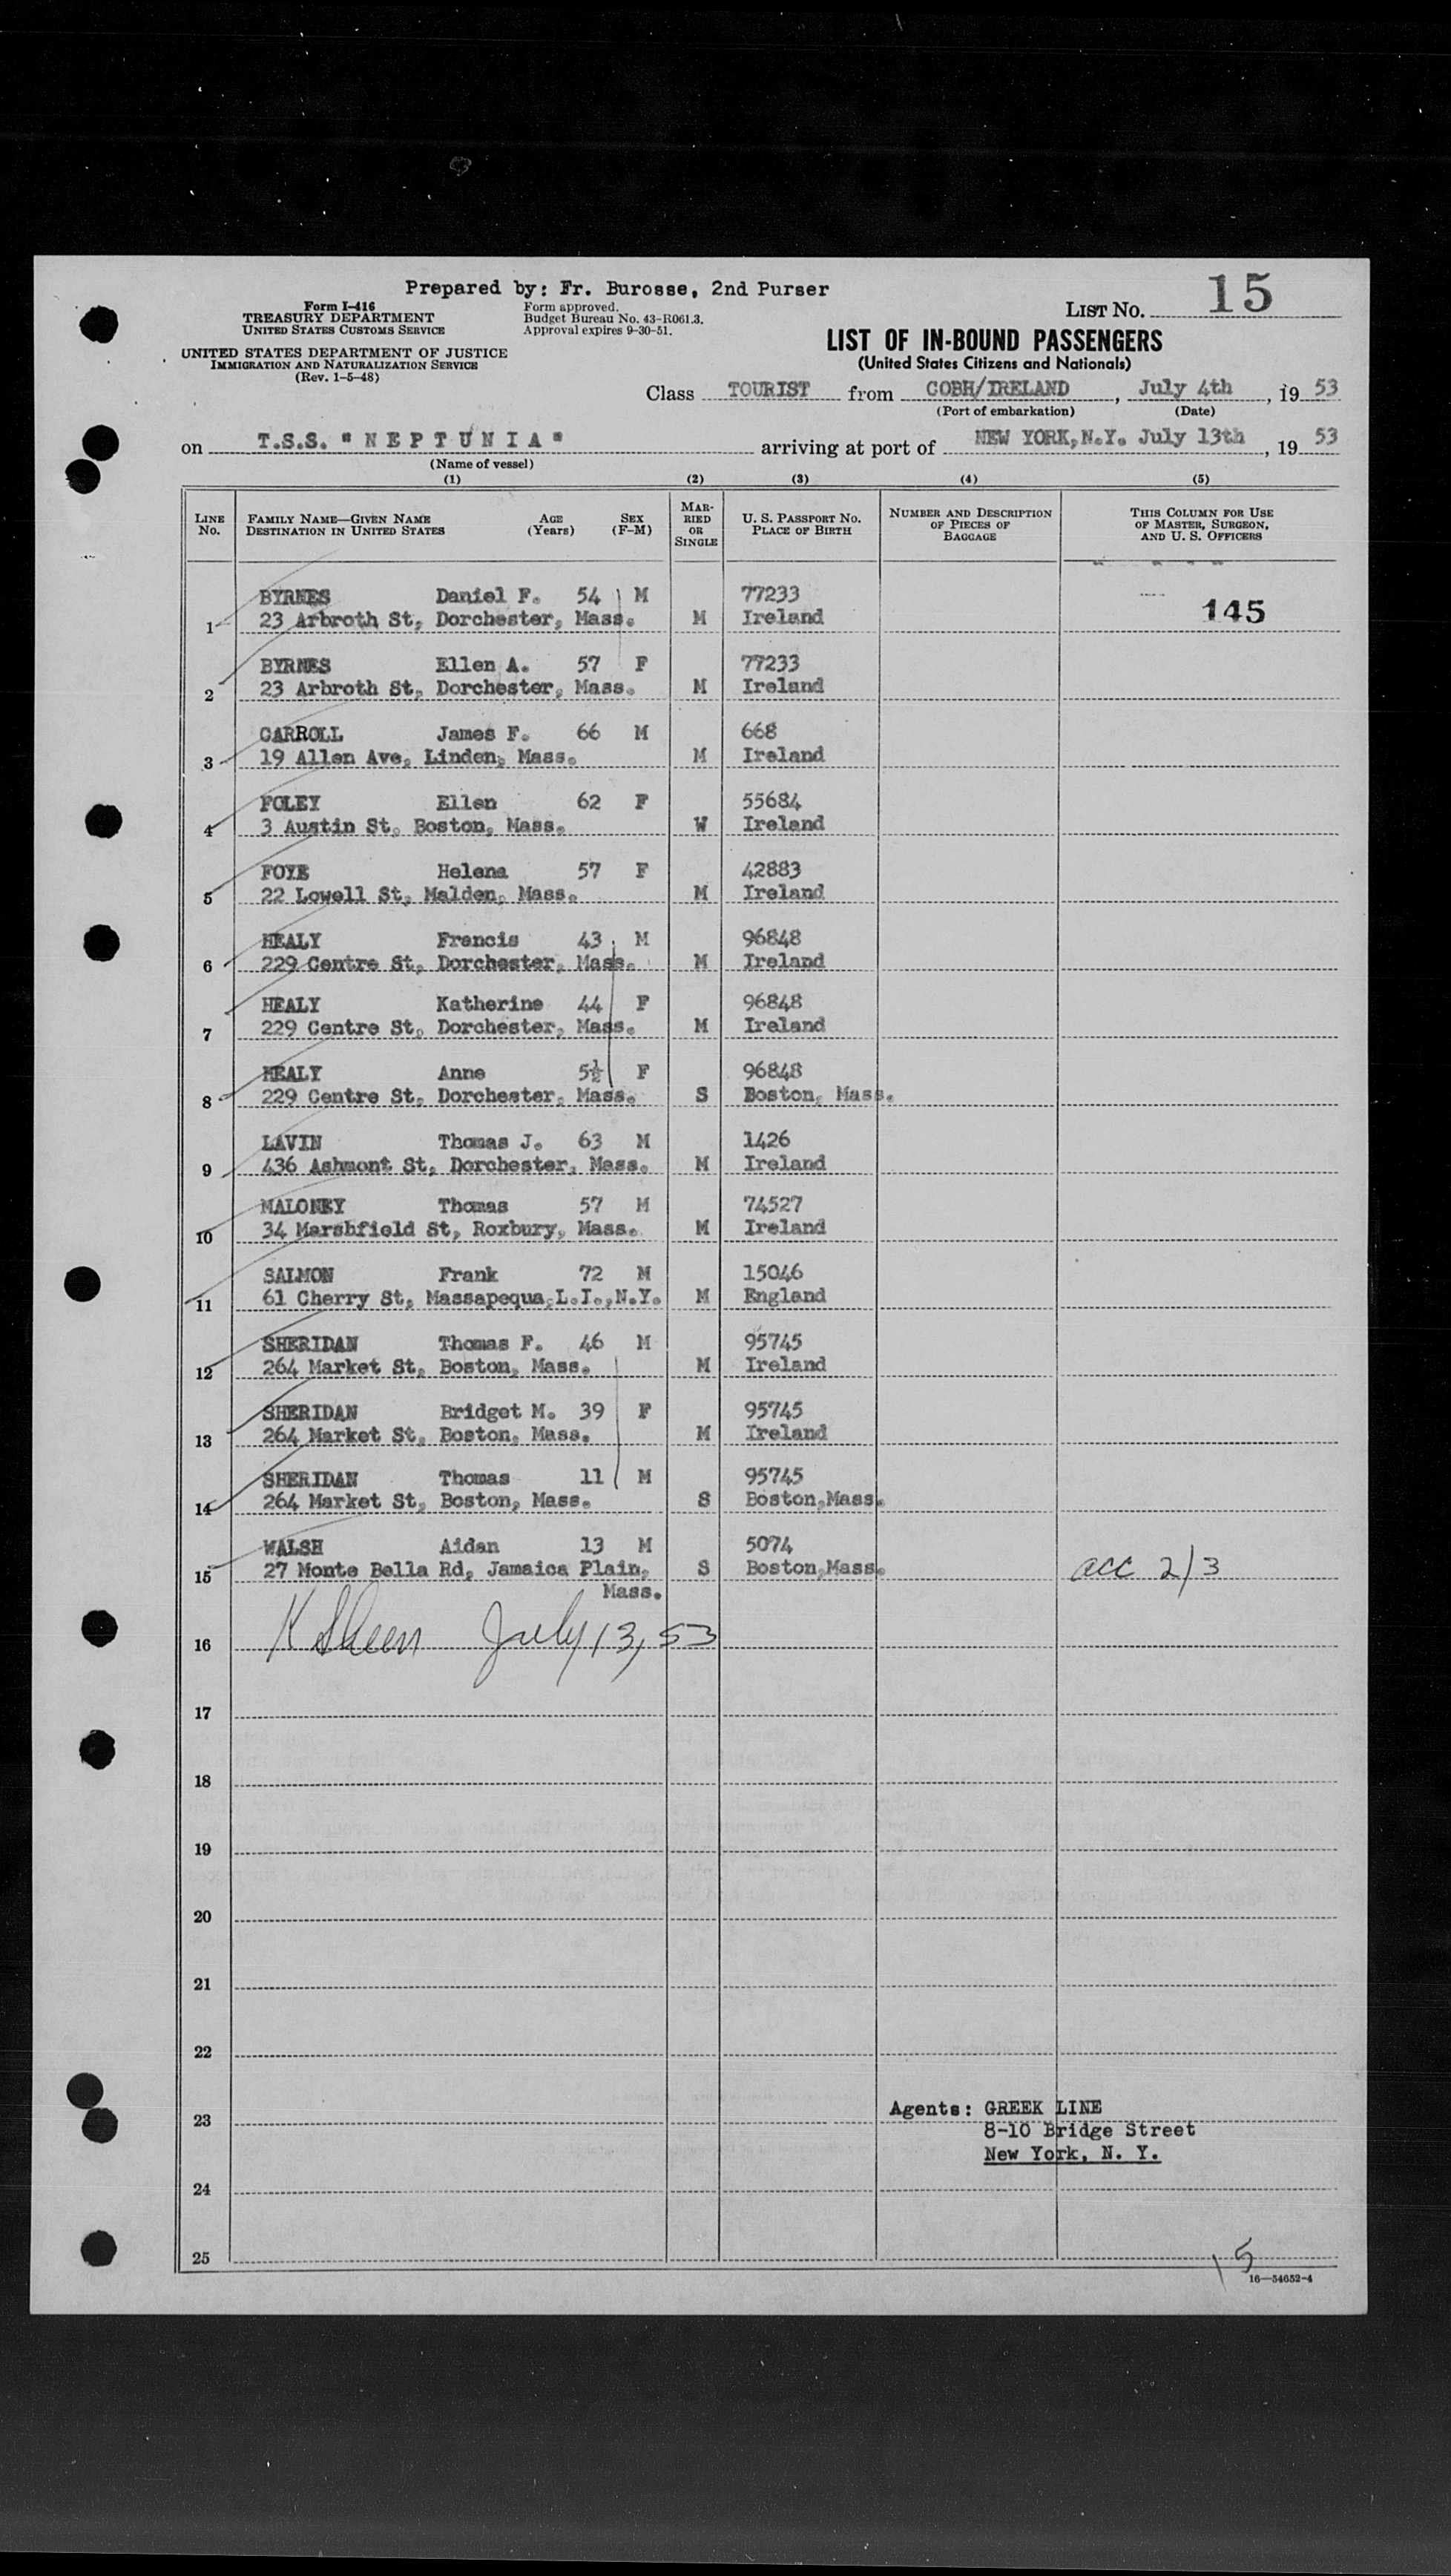 Prepared by: Fr. Burosse, 2nd Purser
Form I-416
TREASURY DEPARTMENT
UNITED STATES CUSTOMS SERVICE
Form approved.
Budget Bureau No. 43-R061.3.
Approval expires 9-30-51.
LIST NO. 15
UNITED STATES DEPARTMENT OF JUSTICE
IMMIGRATION AND NATURALIZATION SERVICE
(Rev. 1-5-48)
LIST OF IN-BOUND PASSENGERS
(United States Citizens and Nationals)
Class TOURIST from COBH/IRELAND, July 4th, 1953
(Port of embarkation) (Date)
on T.S.S. "NEPTUNIA" arriving at port of NEW YORK,N.Y. July 13th, 1953
(Name of vessel)
(1) (2) (3) (4) (5)
LINE NO. FAMILY NAME—GIVEN NAME DESTINATION IN UNITED STATES AGE (Years) SEX (F-M) MARRIED OR SINGLE U. S. PASSPORT NO. PLACE OF BIRTH NUMBER AND DESCRIPTION OF PIECES OF BAGGAGE THIS COLUMN FOR USE OF MASTER, SURGEON, AND U. S. OFFICERS
BYRNES Daniel F. 54 M 77233
1 23 Arbroth St, Dorchester, Mass. M Ireland 145
BYRNES Ellen A. 57 F 77233
2 23 Arbroth St, Dorchester, Mass. M Ireland
CARROLL James F. 66 M 668
3 19 Allen Ave, Linden, Mass. M Ireland
FOLEY Ellen 62 F 55684
4 3 Austin St, Boston, Mass. W Ireland
FOYE Helena 57 F 42883
5 22 Lowell St, Malden, Mass. M Ireland
HEALY Francis 43 M 96848
6 229 Centre St, Dorchester, Mass. M Ireland
HEALY Katherine 44 F 96848
7 229 Centre St, Dorchester, Mass. M Ireland
HEALY Anne 5½ F 96848
8 229 Centre St, Dorchester, Mass. S Boston, Mass.
LAVIN Thomas J. 63 M 1426
9 436 Ashmont St, Dorchester, Mass. M Ireland
MALONEY Thomas 57 M 74527
10 34 Marshfield St, Roxbury, Mass. M Ireland
SALMON Frank 72 M 15046
11 61 Cherry St, Massapequa,L.I.,N.Y. M England
SHERIDAN Thomas F. 46 M 95745
12 264 Market St, Boston, Mass. M Ireland
SHERIDAN Bridget M. 39 F 95745
13 264 Market St, Boston, Mass. M Ireland
SHERIDAN Thomas 11 M 95745
14 264 Market St, Boston, Mass. S Boston,Mass.
WALSH Aidan 13 M 5074
15 27 Monte Bella Rd, Jamaica Plain, S Boston,Mass. acc 2/3
Mass.
16 K Sheen July 13, 53
17
18
19
20
21
22
23 Agents: GREEK LINE
8-10 Bridge Street
New York, N. Y.
24
25
15
16—54652-4